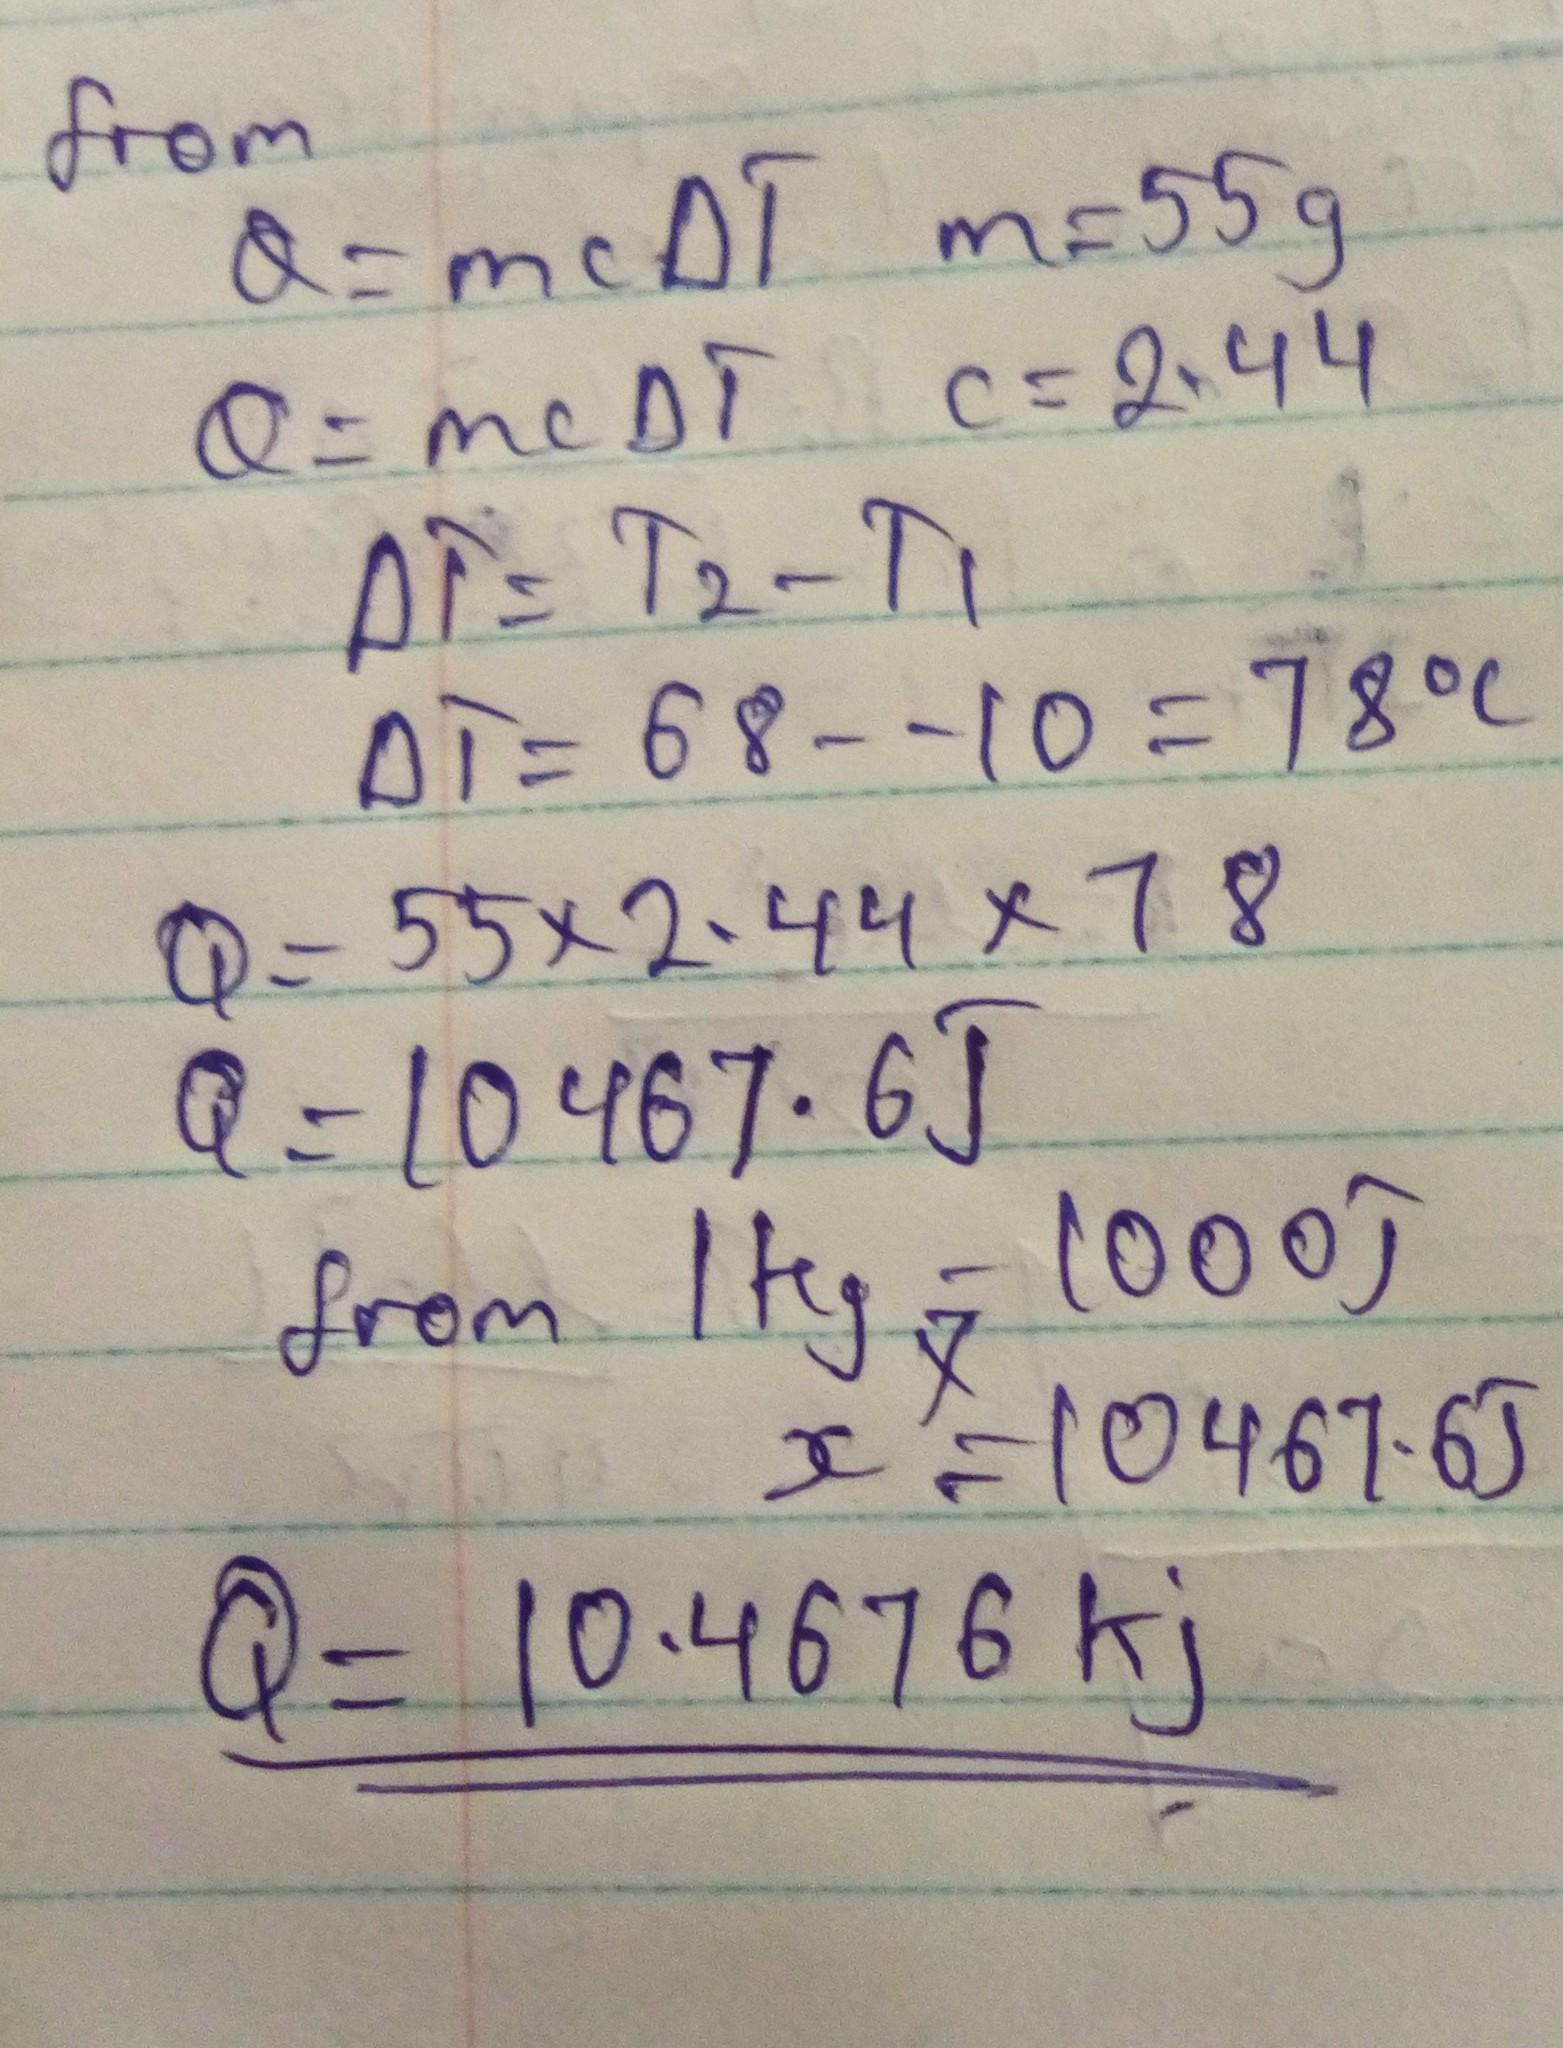 from
Q = mcΔT m=55g
Q = mcΔT c = 2.44
ΔT = T2 - T1
ΔT = 68 - -10 = 78°C
Q = 55 x 2.44 x 78
Q = 10467.6J
from 1kg = 1000J
x
x = 10467.6J
Q = 10.4676 kj